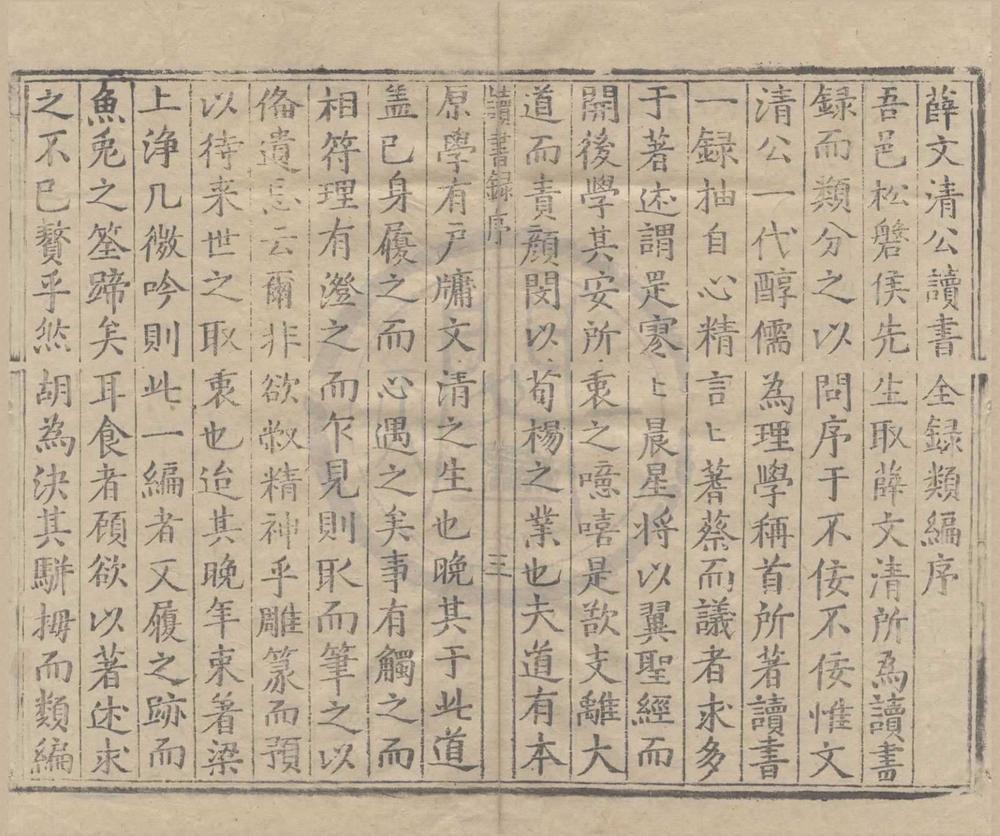 薛文清公讀書全録類編序
吾邑松磐侯先生取薛文清所為讀書
録而類分之以問序于不佞不佞惟文
清公一代醇儒為理學稱首所著讀書
一録抽自心精言〻著蔡而議者求多
于著述謂是寥〻晨星将以翼聖經而
開後學其安所衷之噫嘻是歆支離大
道而責顔閔以荀楊之業也夫道有本
讀書録序 三
原學有戸牖文清之生也晚其于此道
盖已身履之而心遇之矣事有觸之而
相符理有澄之而乍見則取而筆之以
俻遺忘云爾非欲敝精神乎雕篆而預
以待来世之取衷也迨其晚年束著梁
上浄几微吟則此一編者又履之跡而
魚兎之筌蹄矣耳食者顧欲以著述求
之不已贅乎然胡為決其駢拇而類編